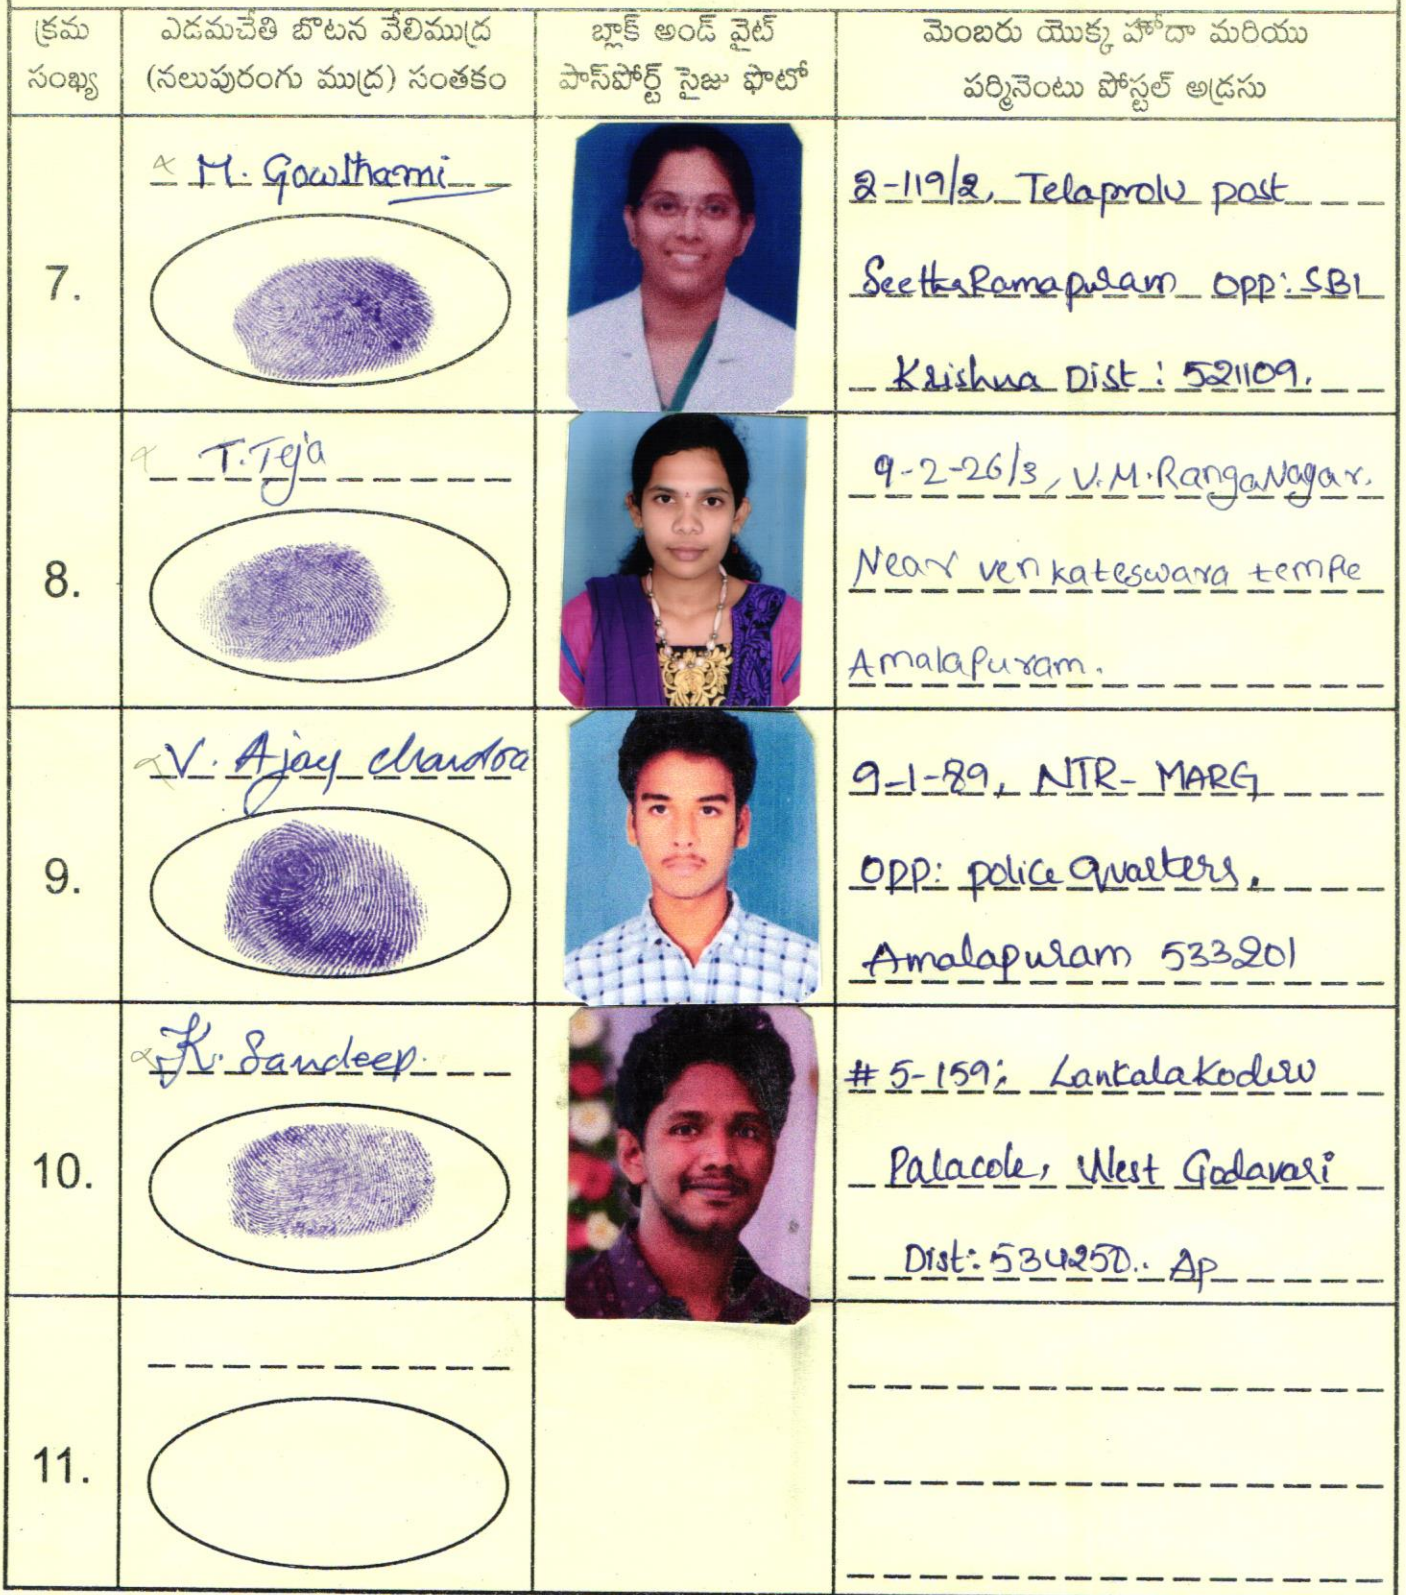 క్రమ
సంఖ్య
ఎడమచేతి బొటన వేలిముద్ర
(నలుపురంగు ముద్ర) సంతకం
బ్లాక్ అండ్ వైట్
పాస్‌పోర్ట్ సైజు ఫొటో
మెంబరు యొక్క హోదా మరియు
పర్మినెంటు పోస్టల్ అడ్రసు
7.
M. Gowthami
2-119/2, Telaprolu post
SeethaRamapuram opp: SBI
Krishna Dist : 521109.
8.
T. Teja
9-2-26/3, V.M.RangaNagar.
Near venkateswara tempe
Amalapuram.
9.
V. Ajay chandra
9-1-89, NTR- MARG
opp: police quarters,
Amalapuram 533201
10.
K. Sandeep.
# 5-159; Lankalakoderu
Palacole, West Godavari
Dist: 534250.. Ap
11.